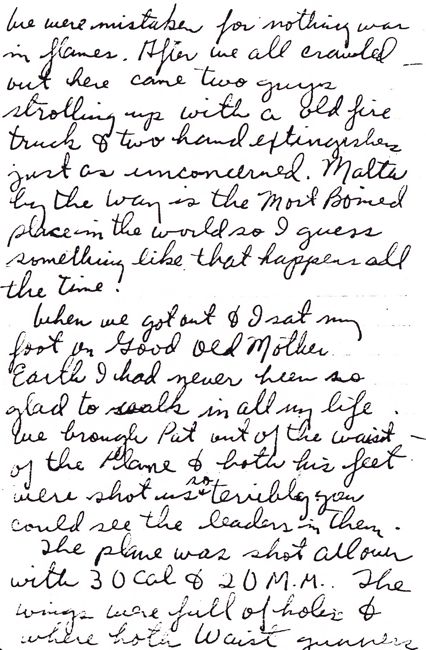 we were mistaken for nothing was
in flames. After we all crawled
out here came two guys
strolling up with a old fire
truck & two hand extingishers
just as unconcerned. Malta
by the way is the Most Bomed
place in the world so I guess
something like that happens all
the time!
When we got out & I sat my
foot on Good old Mother
Earth I had never been so
glad to walk in all my life.
We brough Pat out of the waist
of the Plane & both his feet
were shot us so terribley you
could see the leaders in them.
The plane was shot all over
with 30 Cal & 20 M.M. The
wings were full of holes &
where both Waist gunners